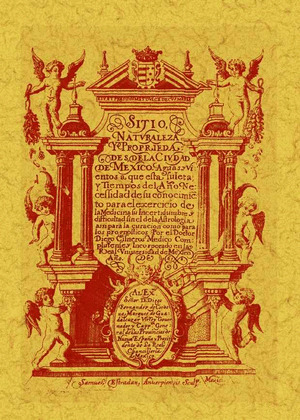 SITIO,
NATVRALEZA
Y PROPRIEDA
DES DE LA CIVDAD
DE MEXICO. Aguas y Vi
entos a que esta suieta,
y Tiempos del Año. Ne
cessidad de su conocimie
nto para el exercicio de
la Medicina su incertidumbre y
difficultad sin el de la Astrologia
assi para la curacion como para
los prognosticos. Por el Doctor
Diego Cisneros Medico Com
plutense y Incorporado en la
Real Vniuersidad de Mexico
Al Ex.
Señor D. Diego
Fernandez de Cordo
ua, Marques de Gua
dalcaçar Virey Gouer
nador y Capp. Gene
ral de las Prouincias de
Nueua España y Presi
dente de la Real
Chancilleria
Mexico
Samuel Estradan, Antuerpiensis Sculp. Mexici